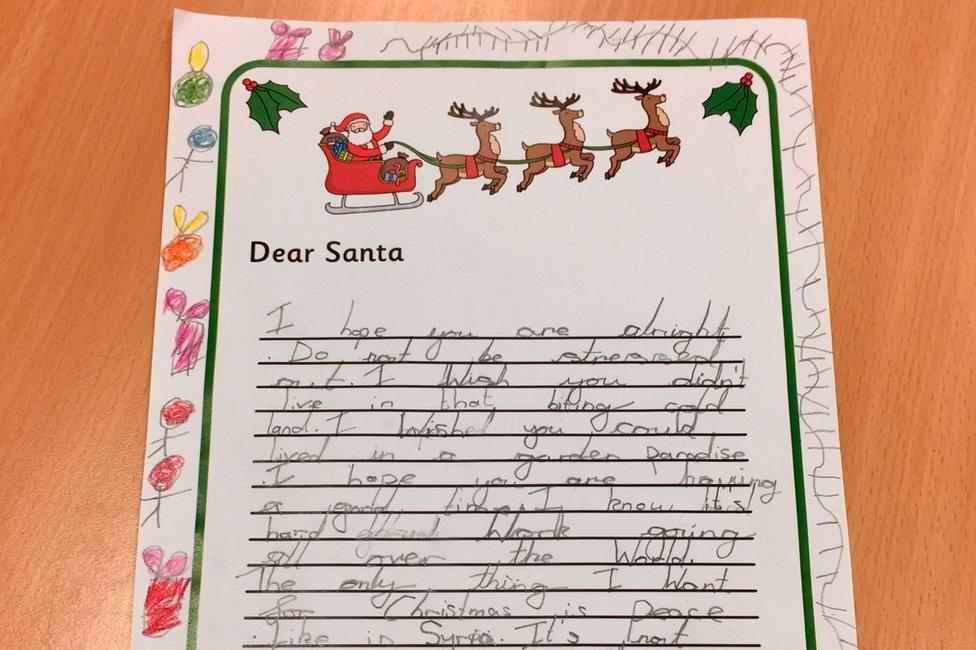 Dear Santa
I hope you are alright
. Do not be stressed
out. I Wish you didn't
live in that biting cold
land. I Wished you could
lived in a garden Paradise
. I hope you are having
a good time. I know it's
hard Work going
all over the World.
The only thing I Want
for Christmas is Peace
. Like in Syria. It's